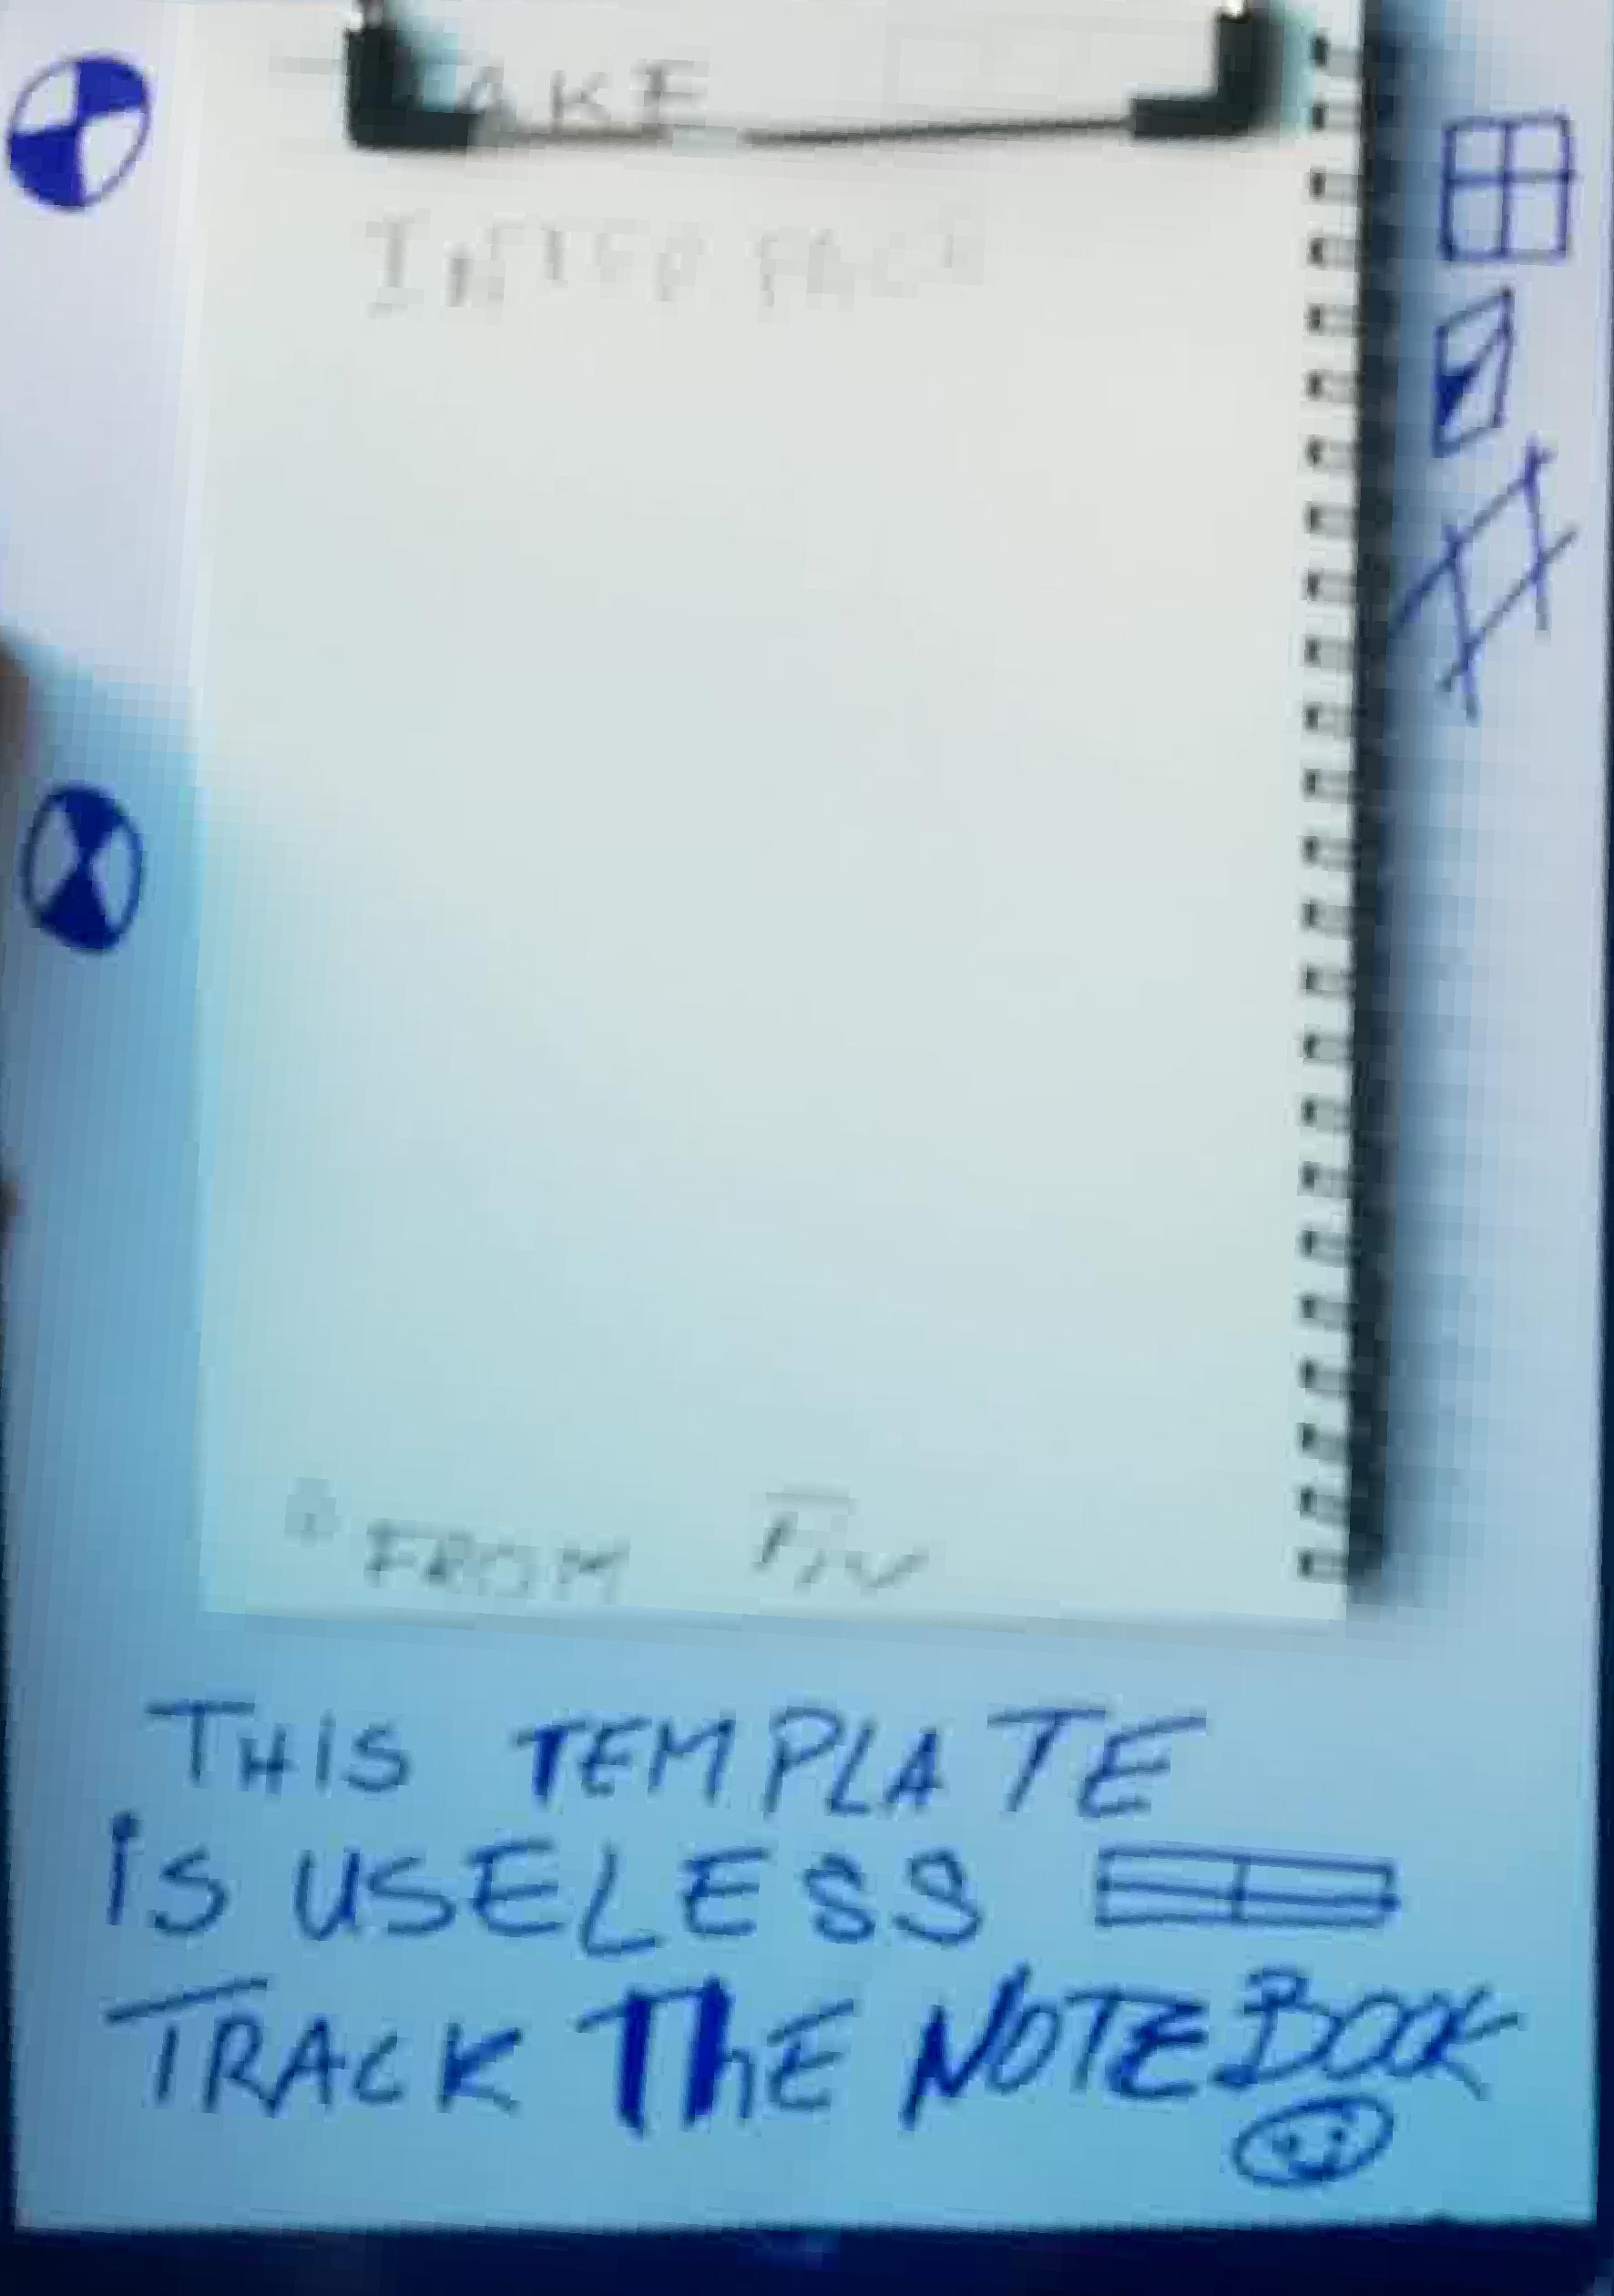 INTER FACE
FROM
THIS TEMPLATE
iS USELESS
TRACK ThE NOTEBOOK